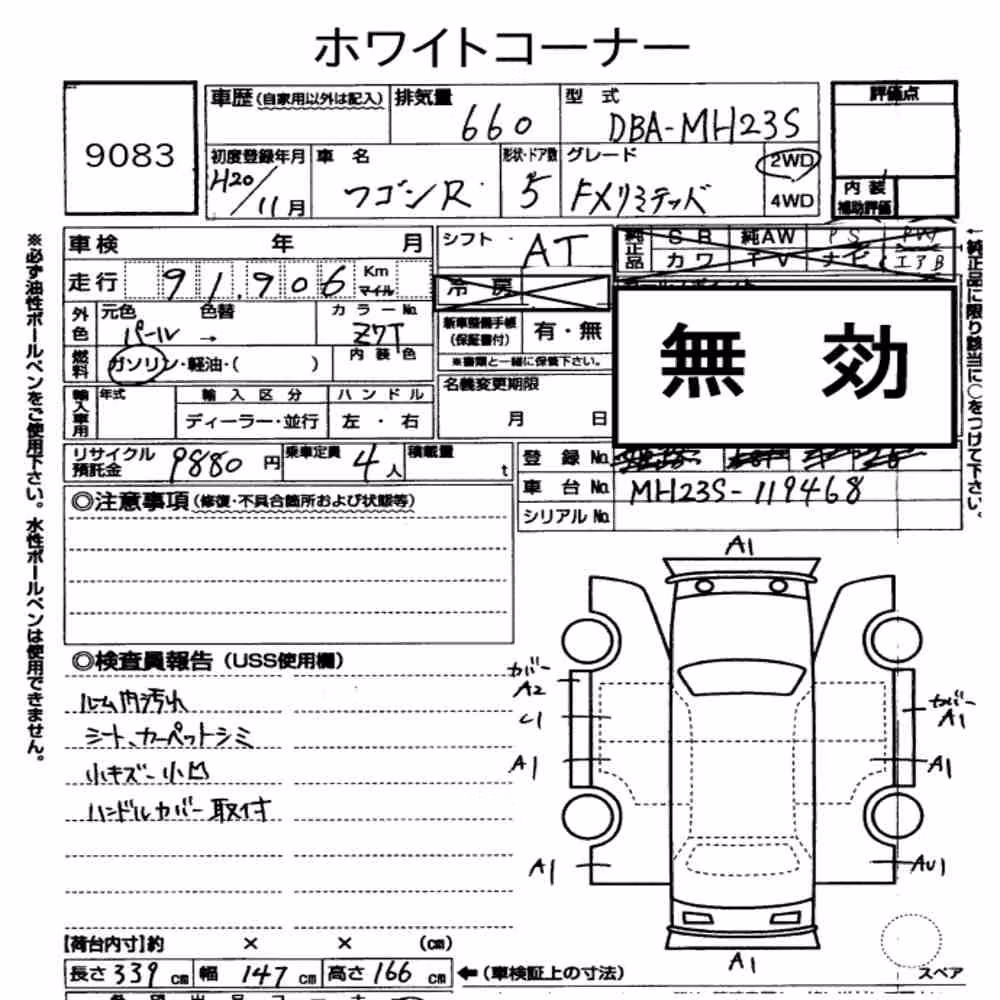 ホワイトコーナー
9083
車歴 (自家用以外は記入)
排気量 660
型式 DBA-MH23S
評価点
初度登録年月 H20/11月
車名 ワゴンR
形状・ドア数 5
グレード FXリミテッド
2WD
4WD
内装
補助評価
車検 年 月
シフト AT
純正品 SR 純AW PS PW
カワ TV ナビ エアB
走行 91,906 Km マイル
冷房
外色 元色 パール → 色替
カラーNo. Z7T
新車整備手帳
(保証書付) 有・無
※書類と一緒に保管下さい。
燃料 ガソリン・軽油・( )
内装色
無効
輸入車用 年式 輸入区分 ハンドル
ディーラー・並行 左・右
名義変更期限
月 日
リサイクル
預託金 9880円
乗車定員 4人
積載量 t
登録No.
車台No. MH23S-119468
シリアルNo.
※必ず油性ボールペンをご使用下さい。水性ボールペンは使用できません。
←純正品に限り該当に○をつけて下さい。
◎注意事項(修復・不具合箇所および状態等)
◎検査員報告(USS使用欄)
ルーム内汚れ
シート、カーペットシミ
小キズ 小凹
ハンドルカバー取付
A1
カバー
A2
カバー
A1
A1
A1
A1
AU1
A1
スペア
【荷台内寸】約 × × (cm)
長さ 339 cm 幅 147 cm 高さ 166 cm ←(車検証上の寸法)